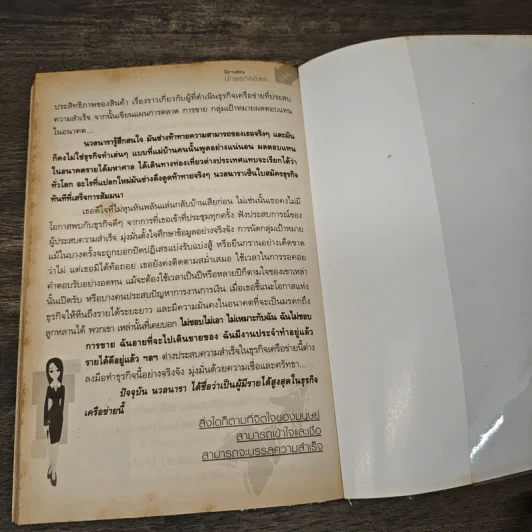 นิทานสอน
นักธุรกิจอิสระ
ประสิทธิภาพของสินค้า เรื่องราวเกี่ยวกับผู้ที่ดำเนินธุรกิจเครือข่ายที่ประสบ
ความสำเร็จ จากนั้นเขียนแผนการตลาด การขาย กลุ่มเป้าหมายผลตอบแทน
ในอนาคต...
นวลนารารู้สึกสนใจ มันช่างท้าทายความสามารถของเธอจริงๆ และมัน
ก็คงไม่ใช่ธุรกิจทำเล่นๆ แบบที่แม่บ้านคนนั้นพูดอย่างแน่นอน ผลตอบแทน
ในอนาคตรายได้มหาศาล ได้เดินทางท่องเที่ยวต่างประเทศแทบจะเรียกได้ว่า
ทั่วโลก อะไรที่แปลกใหม่มันช่างดึงดูดท้าทายจริงๆ นวลนาราเซ็นใบสมัครธุรกิจ
ทันทีที่เสร็จการสัมมนา
เธอดีใจที่ไม่หุนหันพลันแล่นกลับบ้านเสียก่อน ไม่เช่นนั้นเธอคงไม่มี
โอกาสพบกับธุรกิจดีๆ จากการที่เธอเข้าที่ประชุมทุกครั้ง ฟังประสบการณ์ของ
ผู้ประสบความสำเร็จ มุ่งมั่นตั้งใจศึกษาข้อมูลอย่างจริงจัง การนัดกลุ่มเป้าหมาย
แม้ในบางครั้งจะถูกบอกปัดปฏิเสธแบ่งรับแบ่งสู้ หรือยืนกรานอย่างเด็ดขาด
ว่าไม่ แต่เธอมิได้ท้อถอย เธอยังคงติดตามสม่ำเสมอ ใช้เวลาในการรอคอย
คำตอบรับอย่างอดทน แม้จะต้องใช้เวลาเป็นปีหรือหลายปีก็ตามใจของเขาเหล่า
นั้นเปิดรับ หรือบางคนประสบปัญหาการงานการเงิน เมื่อเธอชี้แนะโอกาสแห่ง
ธุรกิจให้หันถึงรายได้ระยะยาว และมีความมั่นคงในอนาคตที่จะเป็นมรดกถึง
ลูกหลานได้ พวกเขา เหล่านั้นที่เคยบอก ไม่ชอบไม่เอา ไม่เหมาะกับฉัน ฉันไม่ชอบ
การขาย ฉันอายที่จะไปเดินขายของ ฉันมีงานประจำทำอยู่แล้ว
รายได้ดีอยู่แล้ว ฯลฯ ต่างประสบความสำเร็จในธุรกิจเครือข่ายนี้ต่าง
ลงมือทำธุรกิจนี้อย่างจริงจัง มุ่งมั่นด้วยความเชื่อและศรัทธา...
ปัจจุบัน นวลนารา ได้ชื่อว่าเป็นผู้มีรายได้สูงสุดในธุรกิจ
เครือข่ายนี้
สิ่งใดก็ตามที่จิตใจของมนุษย์
สามารถเข้าใจและเชื่อ
สามารถจะบรรลุความสำเร็จ